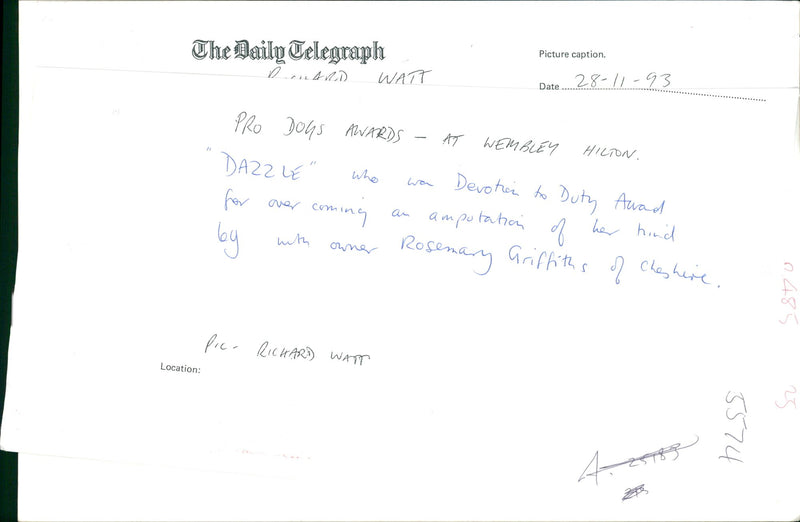 The Daily Telegraph
Picture caption.
RICHARD WATT
Date 28-11-93
PRO DOGS AWARDS — AT WEMBLEY HILTON.
"DAZZLE" who won Devotion to Duty Award
for over coming an amputation of her hind
leg with owner Rosemary Griffiths of Cheshire.
Pic - RICHARD WATT
Location:
A. 25183
5574
0485
25